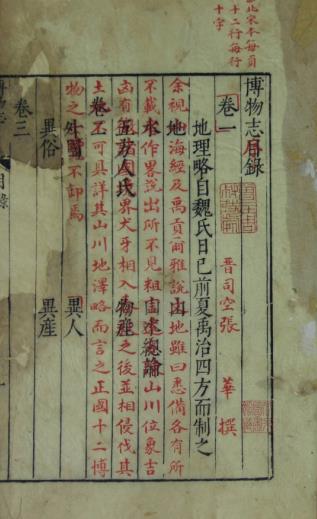 北宋本每頁
十二行每行
十字
博物志目錄
卷一 晋司空張 華 撰
地理略自魏氏日已前夏禹治四方而制之
地 山
余視 海經及禹貢爾雅說 地雖曰悉備各有所
水 山水總論
不載 作略說出所不見粗 山川位象吉
五方人民 物產
凶有 國 界犬牙相入 之後並相侵伐其
卷二
土 不可具詳其山川地澤略而言之正國十二博
外國 異人
物之 焉
異俗 異產
卷三
博物志 目錄 一